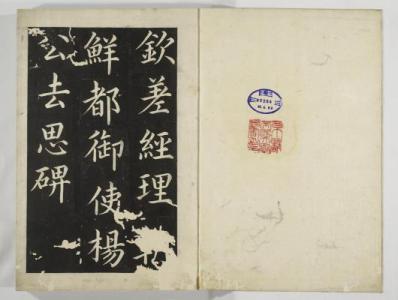 欽差經理
鮮都御使楊
公去思碑